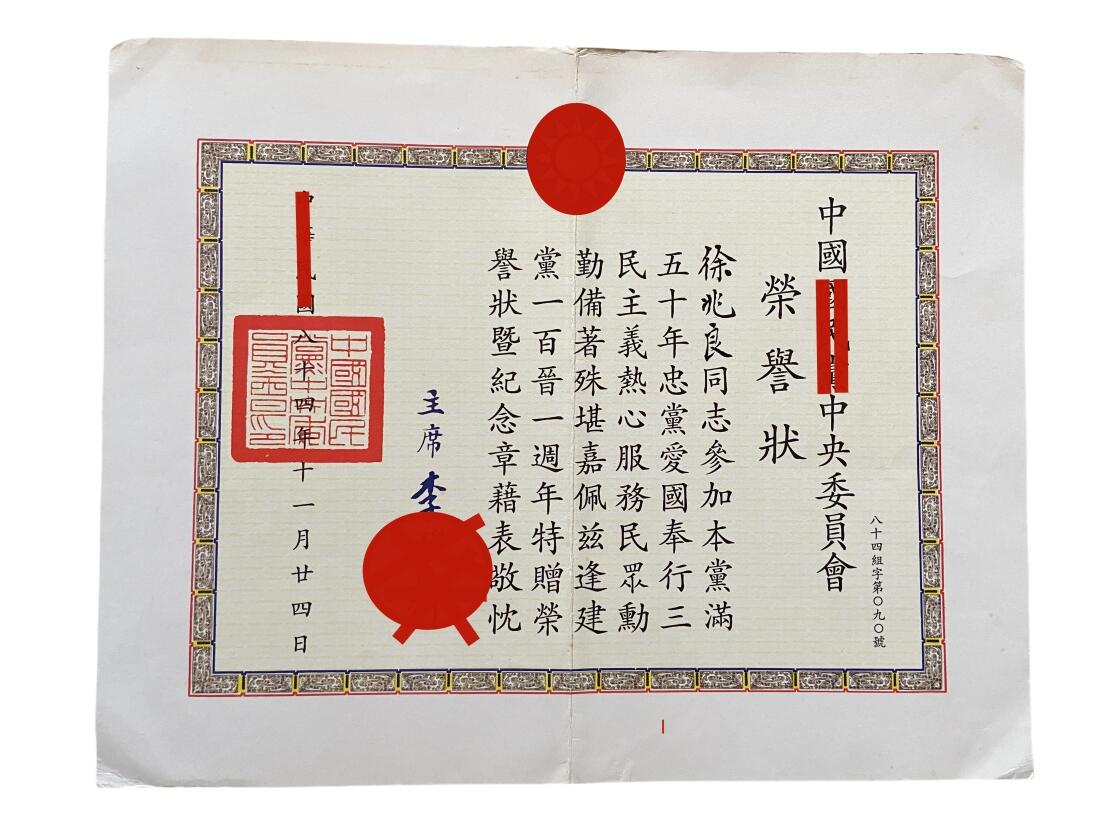 八十四組字第〇九〇號
中國中央委員會
榮譽狀
徐兆良同志參加本黨滿
五十年忠黨愛國奉行三
民主義熱心服務民眾勳
勤備著殊堪嘉佩兹逢建
黨一百晉一週年特贈榮
譽狀暨紀念章藉表敬忱
主席李
國八十四年十一月廿四日
中國國民
黨中央委
員會之印